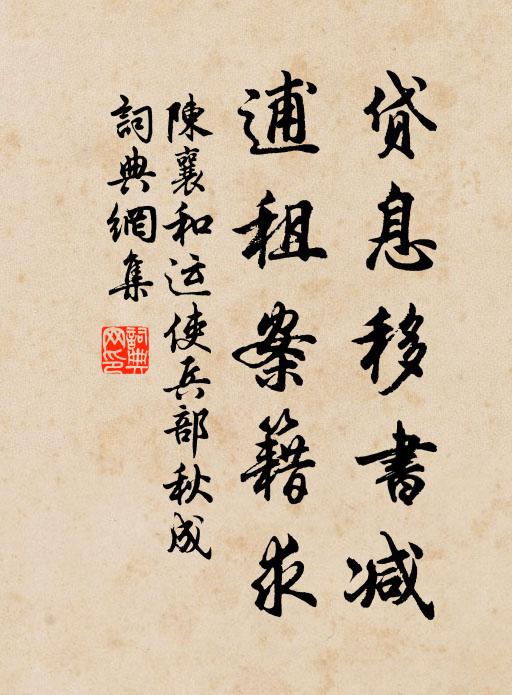 貸息移書减
逋租案籍求
陳襄和运使兵部秋成
詞典網集
詞典网印